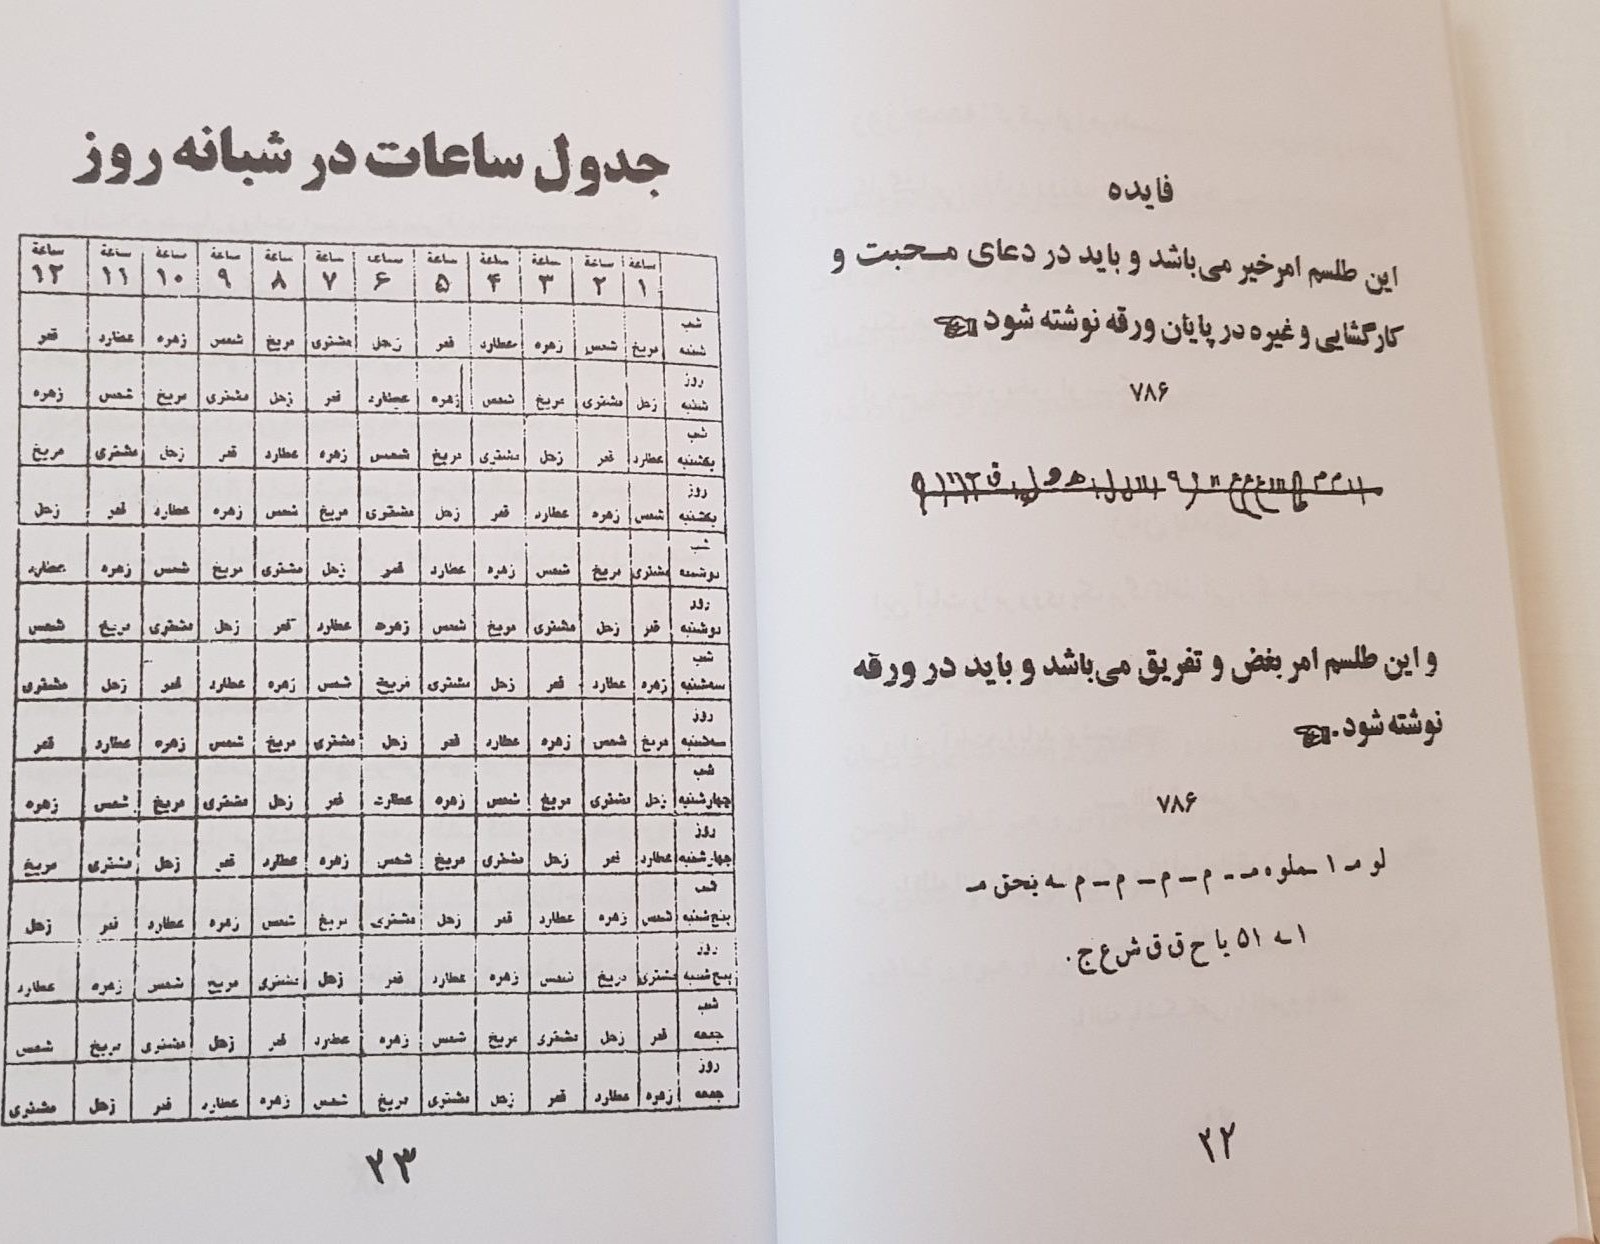 فایده
این طلسم امر خیر می‌باشد و باید در دعای محبت و
کارگشایی و غیره در پایان ورقه نوشته شود
۷۸۶
و این طلسم امر بغض و تفریق می‌باشد و باید در ورقه
نوشته شود.
۷۸۶
۱ـه ۵۱ با ح ق ق ش ع ج.
۲۲
جدول ساعات در شبانه روز
ساعة ساعة ساعة ساعة ساعة ساعة ساعة ساعة ساعة ساعة ساعة ساعة
۱ ۲ ۳ ۴ ۵ ۶ ۷ ۸ ۹ ۱۰ ۱۱ ۱۲
شب
شنبه مریخ شمس زهره عطارد قمر زحل مشتری مریخ شمس زهره عطارد قمر
روز
شنبه زحل مشتری مریخ شمس زهره عطارد قمر زحل مشتری مریخ شمس زهره
شب
یکشنبه عطارد قمر زحل مشتری مریخ شمس زهره عطارد قمر زحل مشتری مریخ
روز
یکشنبه شمس زهره عطارد قمر زحل مشتری مریخ شمس زهره عطارد قمر زحل
شب
دوشنبه مشتری مریخ شمس زهره عطارد قمر زحل مشتری مریخ شمس زهره عطارد
روز
دوشنبه قمر زحل مشتری مریخ شمس زهره عطارد قمر زحل مشتری مریخ شمس
شب
سه‌شنبه زهره عطارد قمر زحل مشتری مریخ شمس زهره عطارد قمر زحل مشتری
روز
سه‌شنبه مریخ شمس زهره عطارد قمر زحل مشتری مریخ شمس زهره عطارد قمر
شب
چهارشنبه زحل مشتری مریخ شمس زهره عطارد قمر زحل مشتری مریخ شمس زهره
روز
چهارشنبه عطارد قمر زحل مشتری مریخ شمس زهره عطارد قمر زحل مشتری مریخ
شب
پنج‌شنبه شمس زهره عطارد قمر زحل مشتری مریخ شمس زهره عطارد قمر زحل
روز
پنج‌شنبه مشتری مریخ شمس زهره عطارد قمر زحل مشتری مریخ شمس زهره عطارد
شب
جمعه قمر زحل مشتری مریخ شمس زهره عطارد قمر زحل مشتری مریخ شمس
روز
جمعه زهره عطارد قمر زحل مشتری مریخ شمس زهره عطارد قمر زحل مشتری
۲۳